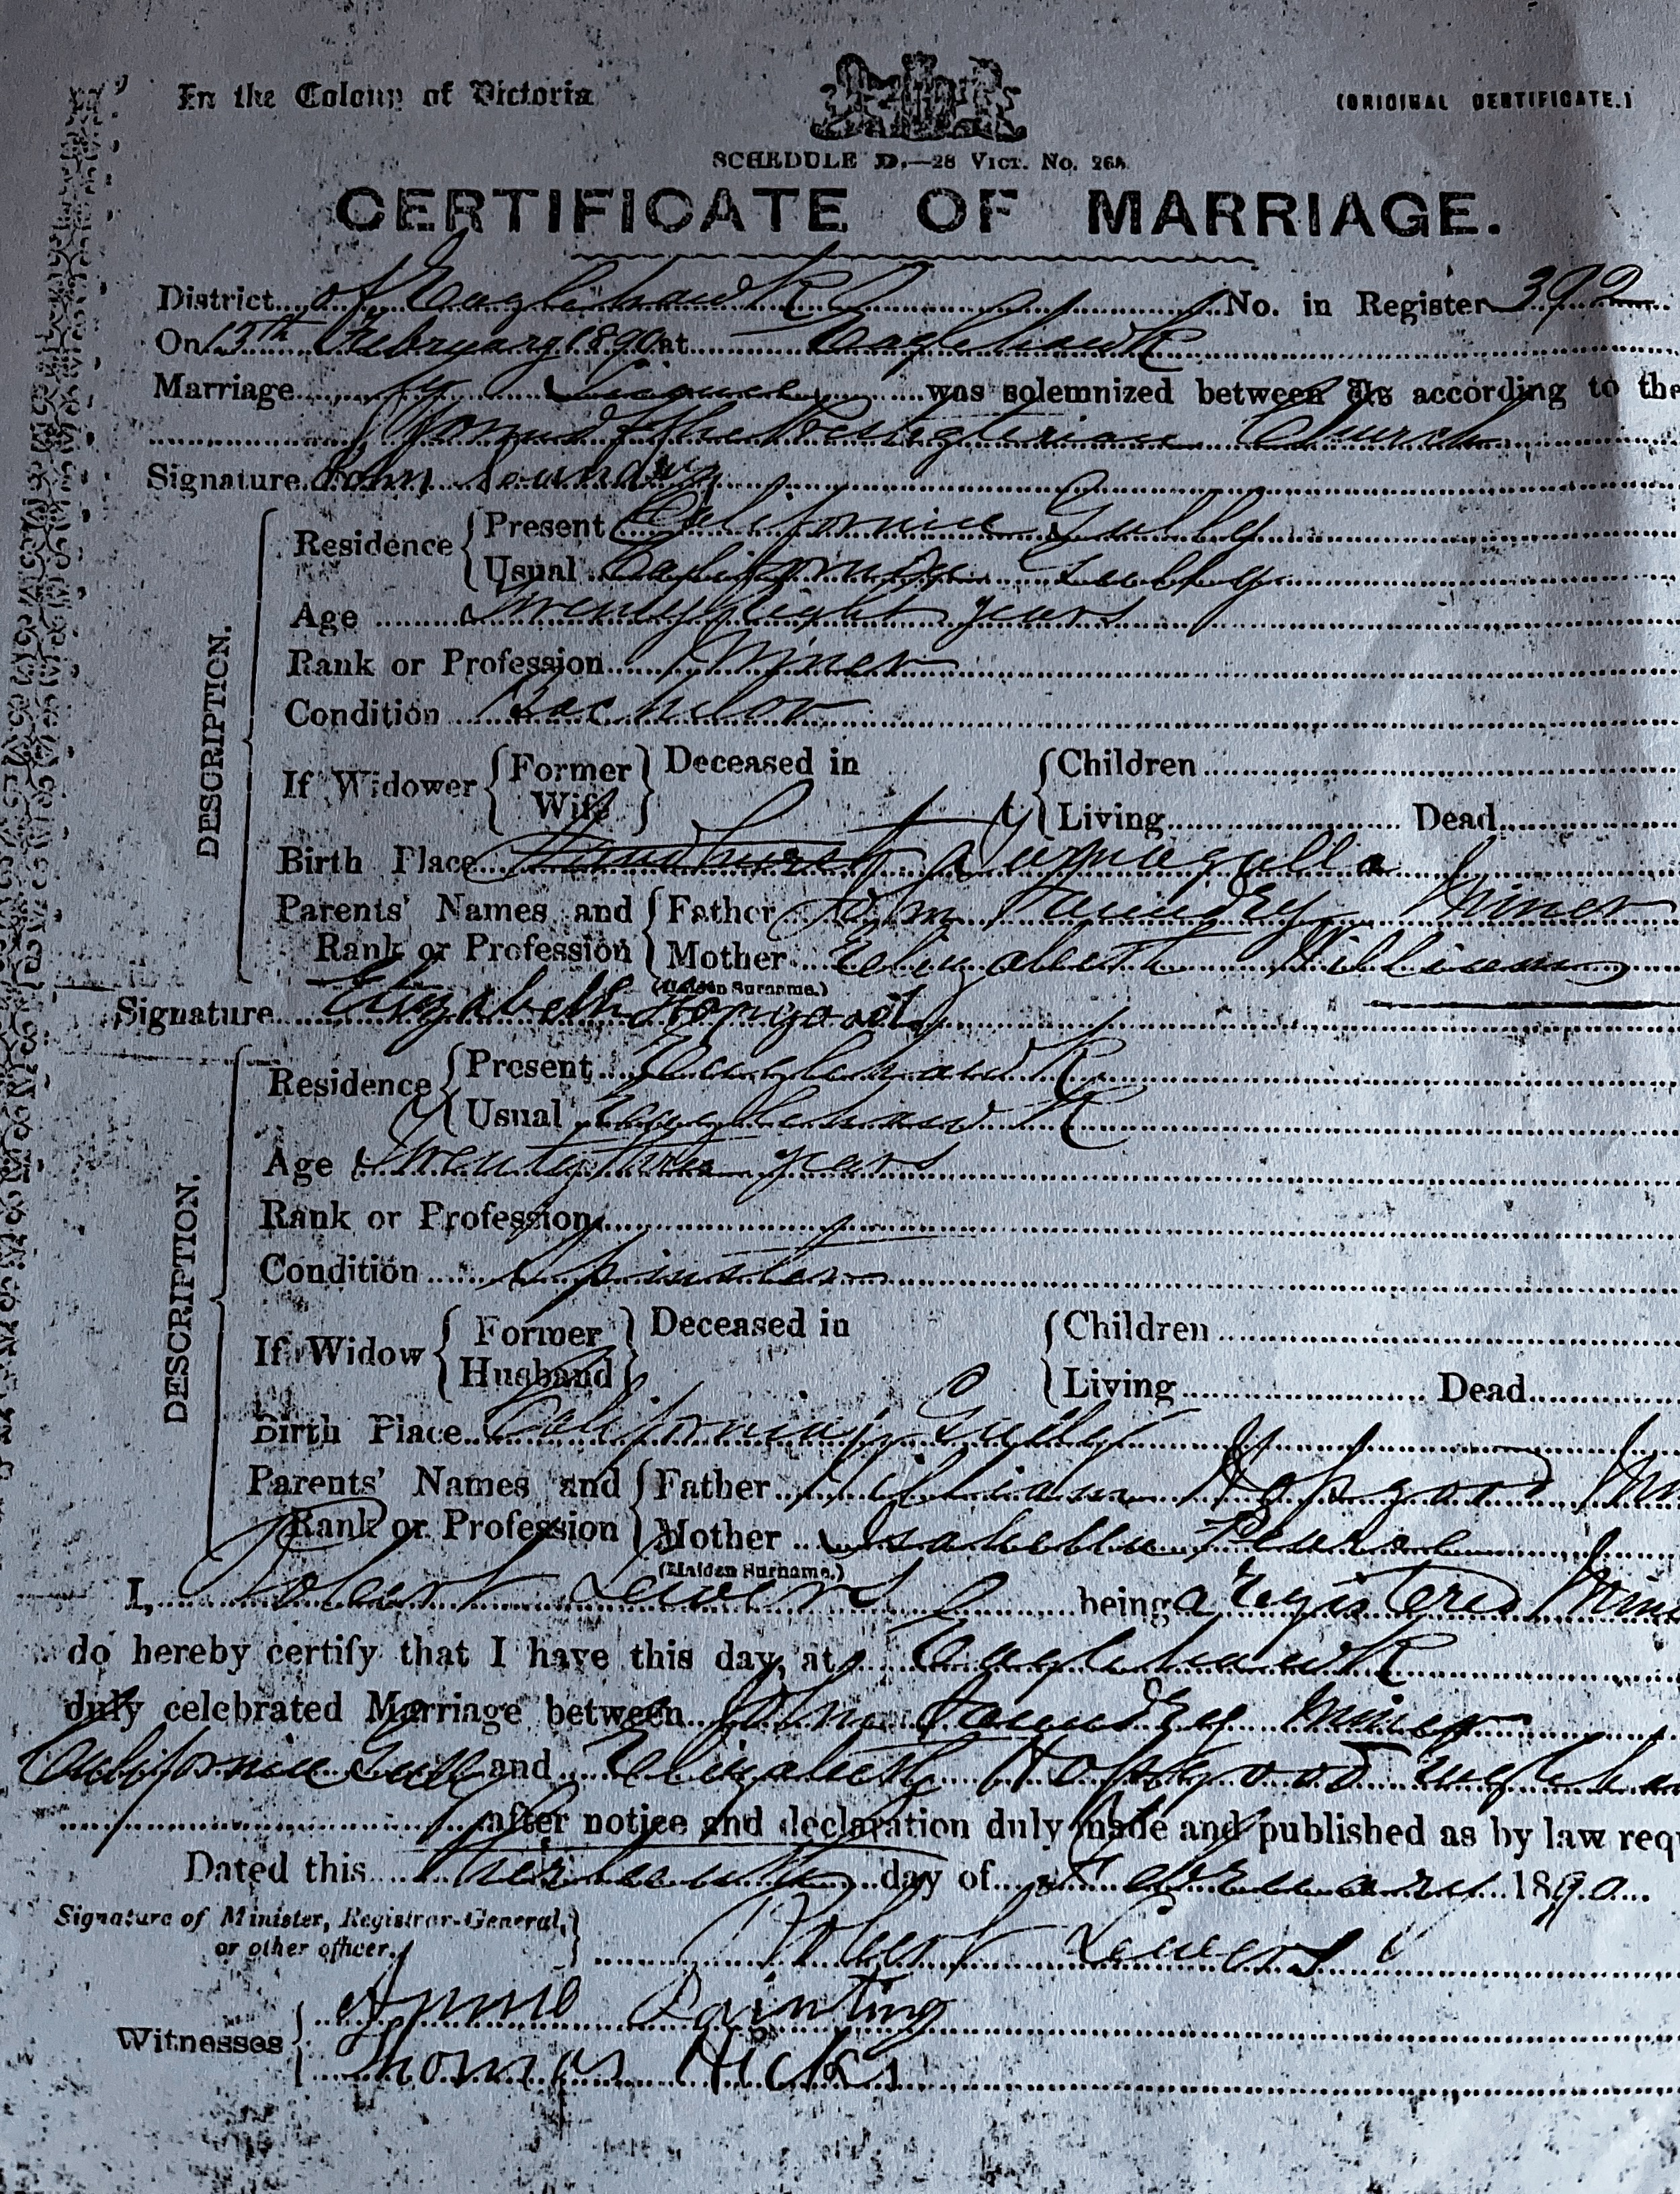 In the Colony of Victoria
(ORIGINAL CERTIFICATE.)
SCHEDULE D.—28 VICT. No. 268.
CERTIFICATE OF MARRIAGE.
District of Eaglehawk No. in Register 392
On 13th February 1890 at Eaglehawk
Marriage by License was solemnized between Us according to the
forms of the Presbyterian Church
Signature John
Residence Present California Gully
Usual California Gully
Age Twenty eight years
Rank or Profession Miner
Condition Bachelor
DESCRIPTION.
If Widower Former Wife Deceased in Children
Living Dead
Birth Place Sandhurst
Parents' Names and Rank or Profession Father Miner
Mother Elizabeth Williams
(Maiden Surname.)
Signature Elizabeth Hopgood
Residence Present Eaglehawk
Usual Eaglehawk
Age years
Rank or Profession
Condition Spinster
DESCRIPTION.
If Widow Former Husband Deceased in Children
Living Dead
Birth Place California Gully
Parents' Names and Rank or Profession Father William Hopgood
Mother Isabella
(Maiden Surname.)
I, Robert being a registered
do hereby certify that I have this day, at Eaglehawk
duly celebrated Marriage between John Miner
California Gully and Elizabeth Hopgood
after notice and declaration duly made and published as by law req
Dated this thirteenth day of February 1890
Signature of Minister, Registrar-General,
or other officer. Robert
Witnesses Annie Painting
Thomas Hicks